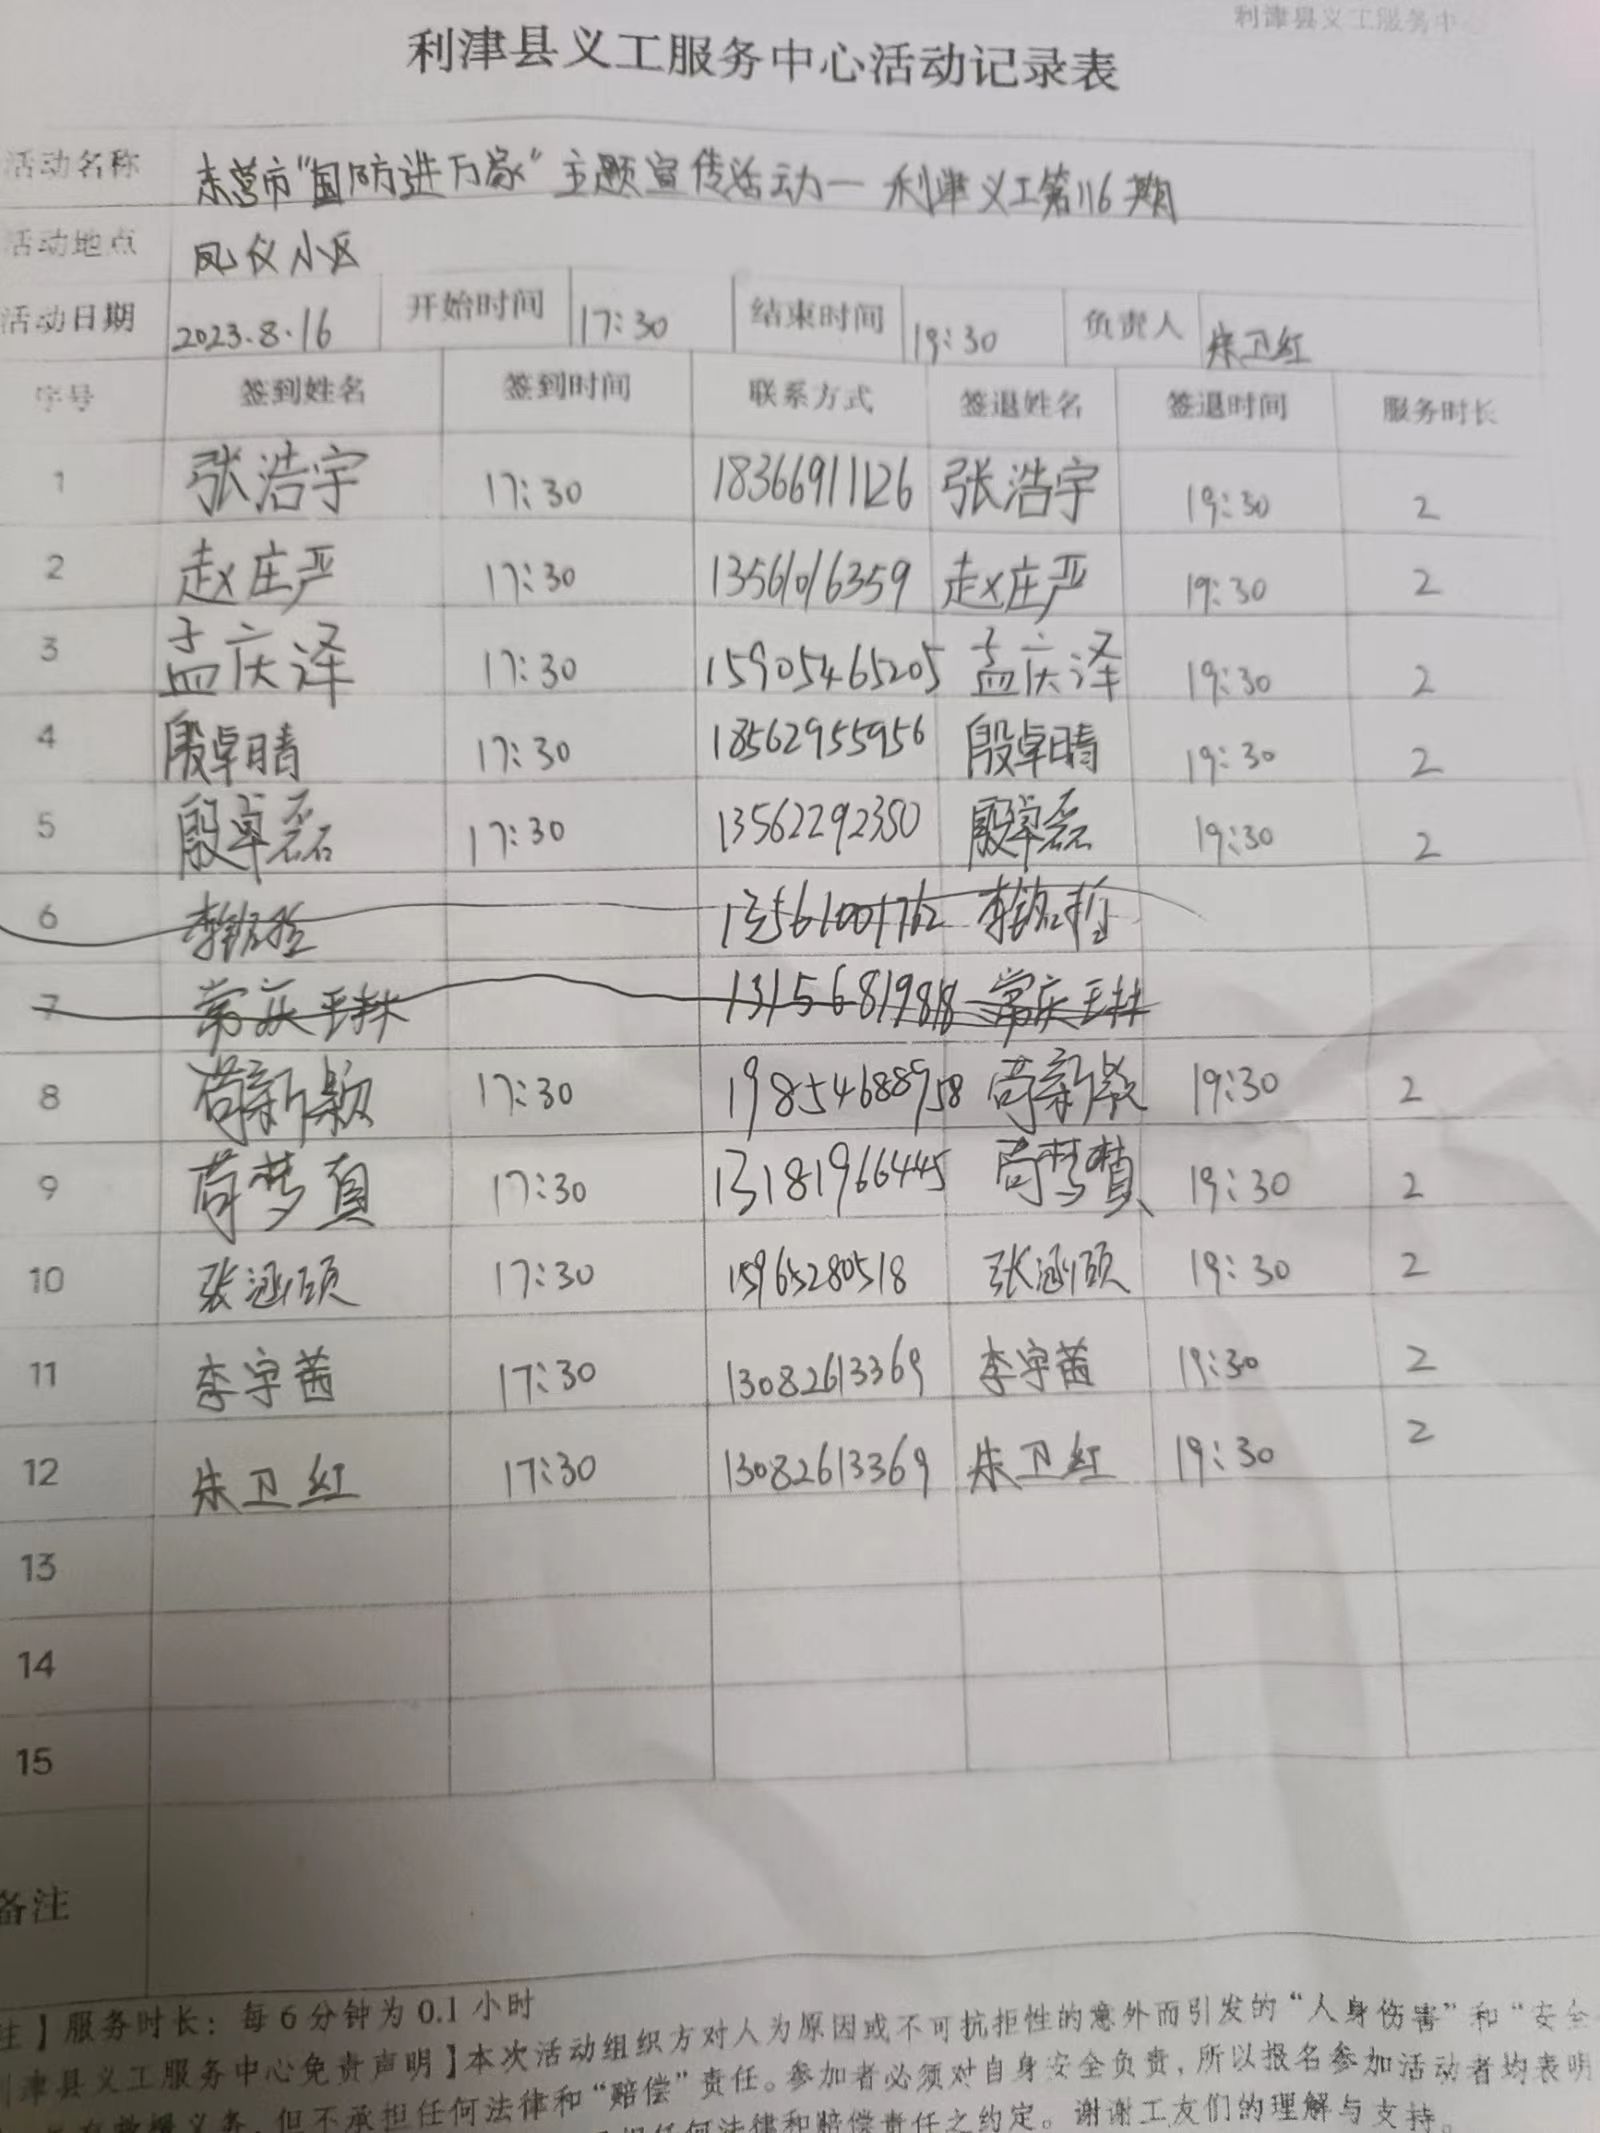 利津县义工服务中心
利津县义工服务中心活动记录表
活动名称 东营市“国防进万家”主题宣传活动—利津义工第116期
活动地点 凤仪小区
活动日期 2023.8.16 开始时间 17:30 结束时间 19:30 负责人 朱卫红
序号 签到姓名 签到时间 联系方式 签退姓名 签退时间 服务时长
1 张浩宇 17:30 18366911126 张浩宇 19:30 2
2 赵庄严 17:30 13561016359 赵庄严 19:30 2
3 孟庆泽 17:30 15905465205 孟庆泽 19:30 2
4 殷卓晴 17:30 18562955956 殷卓晴 19:30 2
5 殷卓磊 17:30 13562292350 殷卓磊 19:30 2
6 李铭哲 13561001762 李铭哲
7 常庆琳 13156819818 常庆琳
8 苟新颖 17:30 19854688958 苟新颖 19:30 2
9 苟梦真 17:30 13181966445 苟梦真 19:30 2
10 张涵硕 17:30 15965280518 张涵硕 19:30 2
11 李宇茜 17:30 13082613369 李宇茜 19:30 2
12 朱卫红 17:30 13082613369 朱卫红 19:30 2
13
14
15
备注
注】服务时长：每6分钟为0.1小时
利津县义工服务中心免责声明】本次活动组织方对人为原因或不可抗拒性的意外而引发的“人身伤害”和“安全
救援义务，但不承担任何法律和“赔偿”责任。参加者必须对自身安全负责，所以报名参加活动者均表明
担任何法律和赔偿责任之约定。谢谢工友们的理解与支持。